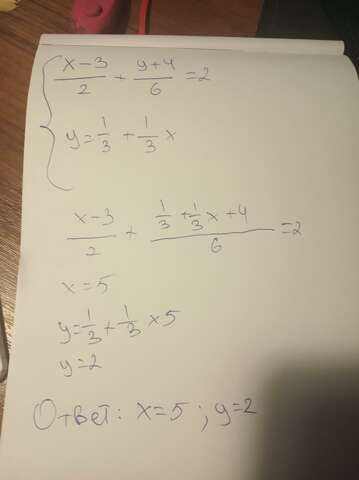 { (x-3)/2 + (y+4)/6 = 2
y = 1/3 + 1/3 x
(x-3)/2 + (1/3 + 1/3 x + 4)/6 = 2
x = 5
y = 1/3 + 1/3 × 5
y = 2
Ответ: x = 5 ; y = 2